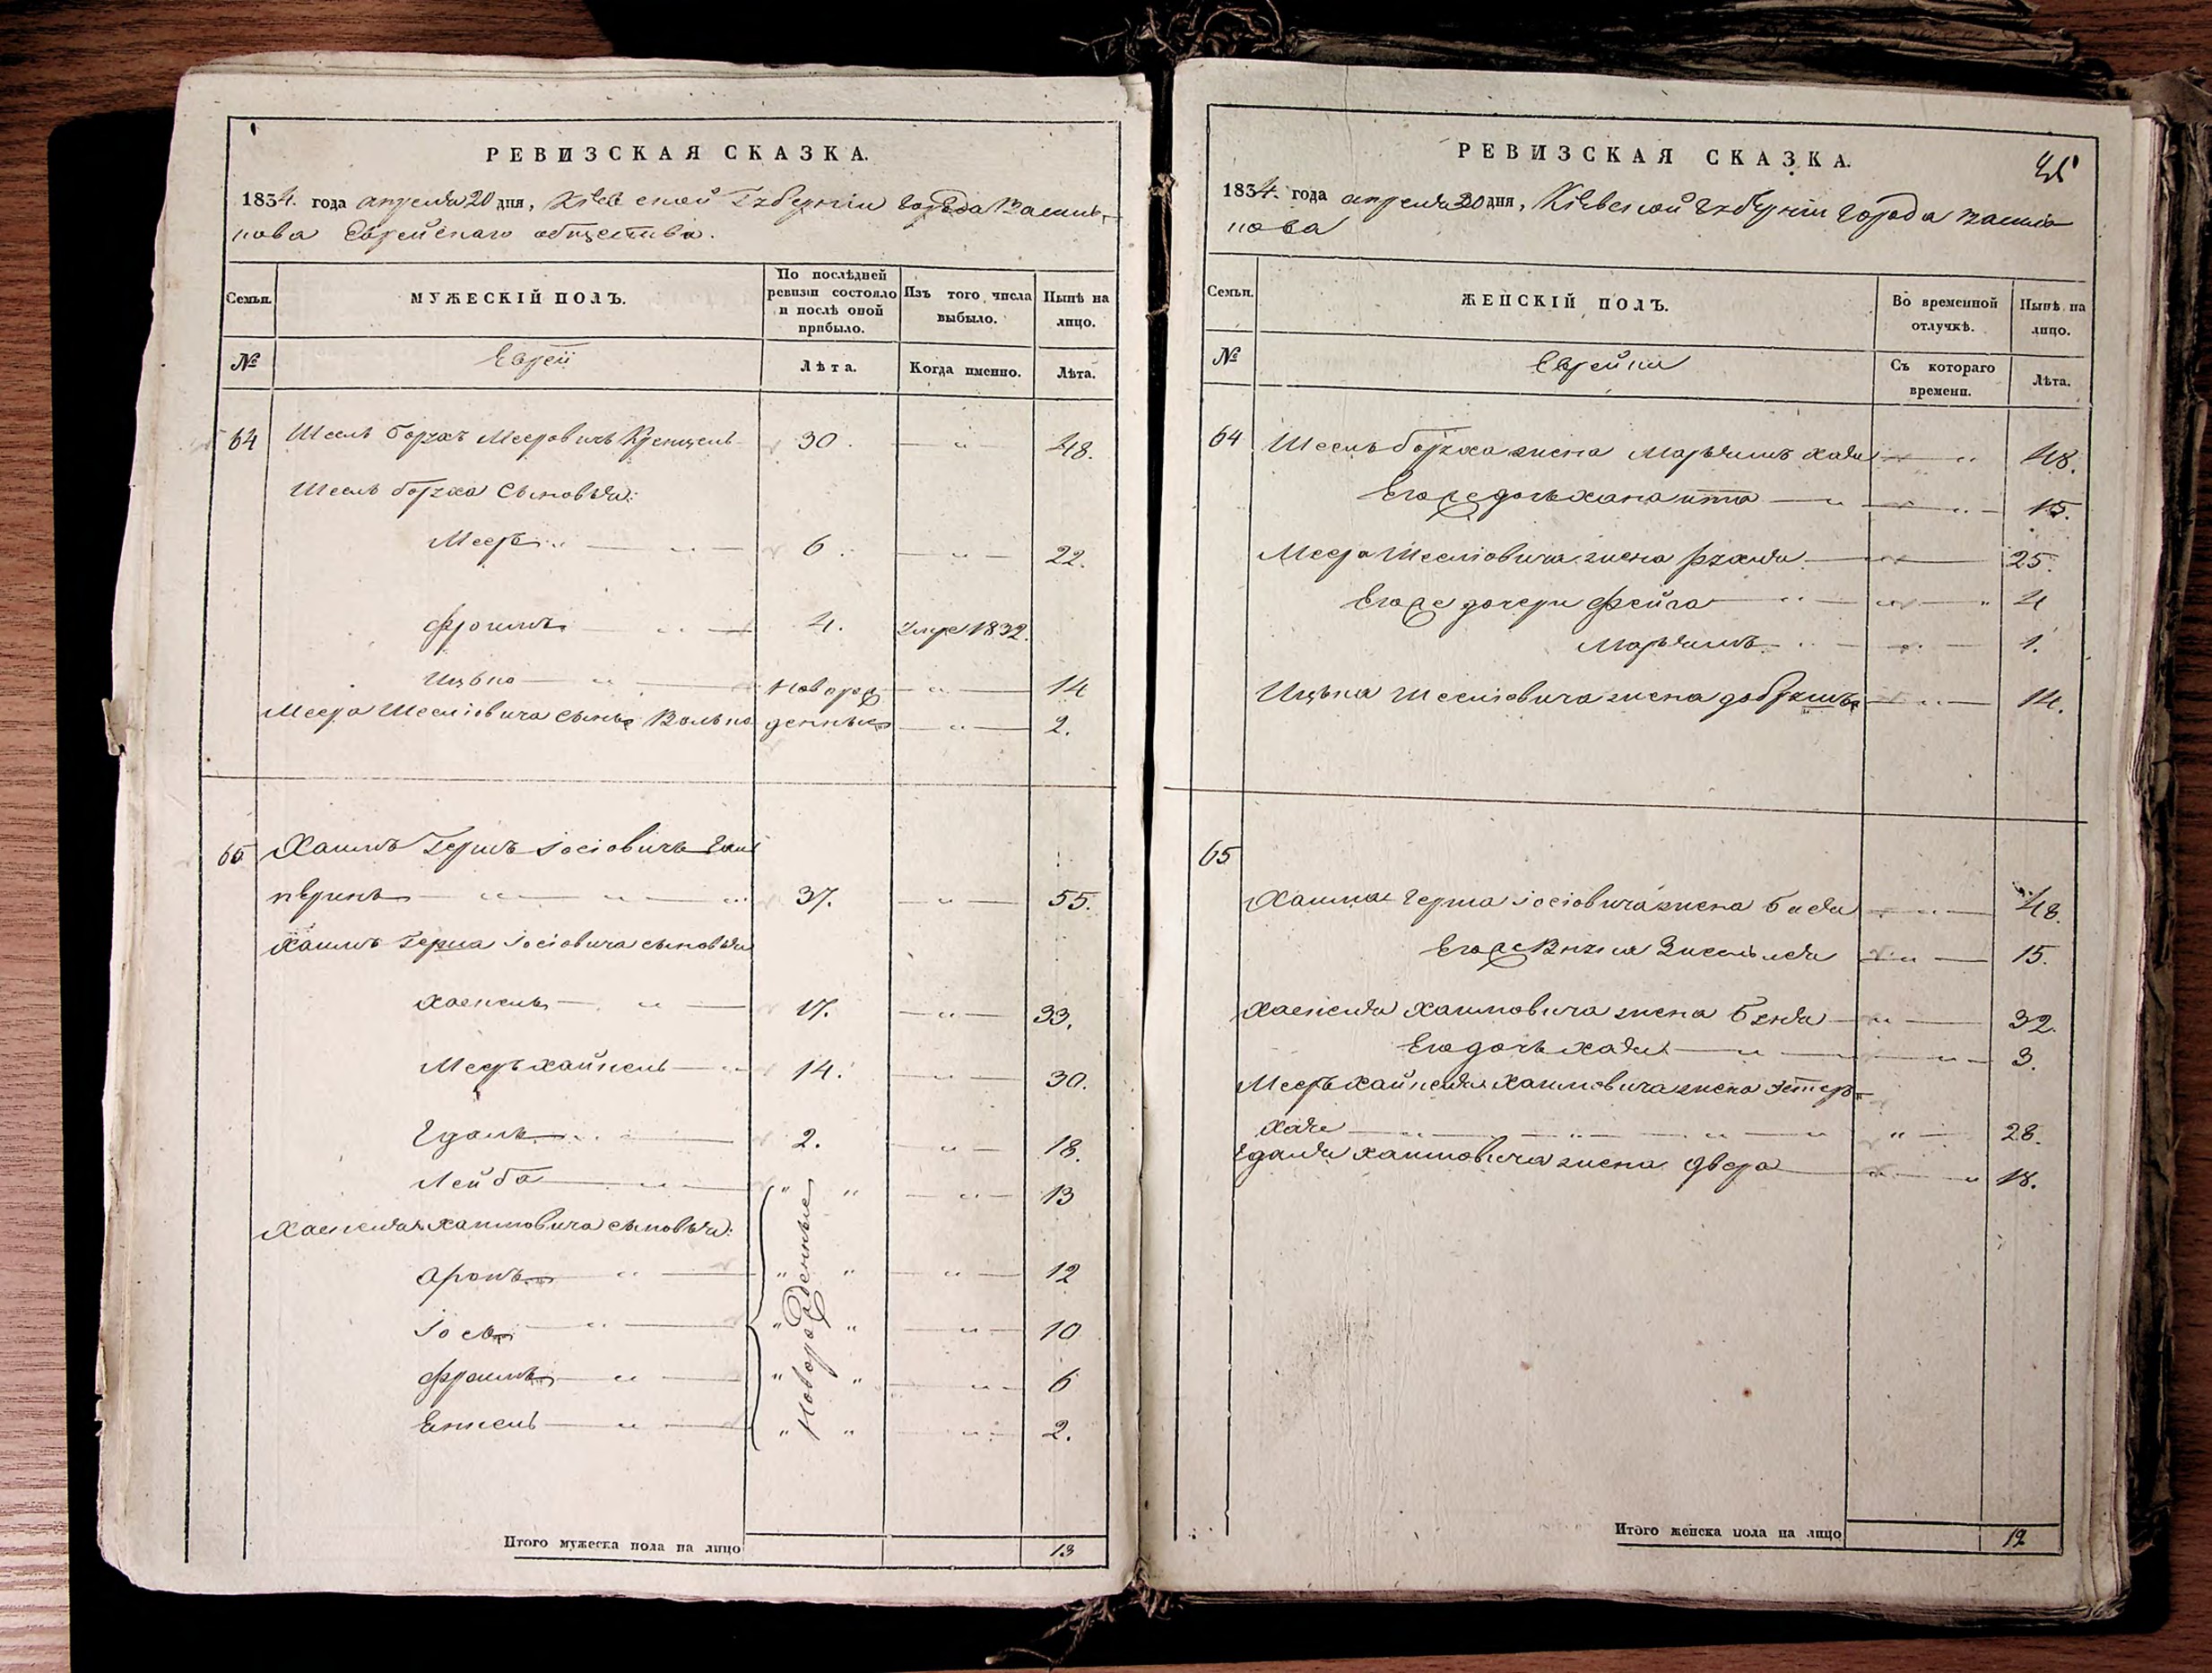 РЕВИЗСКАЯ СКАЗКА.
1834. года апреля 20 дня, Кіевской Губерніи города Василь-
кова Еврейскаго общества.
Семьи.
МУЖЕСКІЙ ПОЛЪ.
По послѣдней ревизіи состояло и послѣ оной прибыло.
Изъ того числа выбыло.
Нынѣ на лицо.
№
Евреи
Лѣта.
Когда именно.
Лѣта.
64 Шеель Борух Мееровичъ 30. " 48.
Шеель Боруха Сыновья:
Меер " 6. " 22.
Фроимъ " 4. Умре 1832.
Ицько " новорож 14
Меера Шееліовича сынъ Волько денные " 2.
65 Хаимъ Гершъ Іосіовичъ Галь
перинъ " " " 37. " 55.
Хаимъ Герша Іосіовича сыновья
Хаскель " 17. " 33.
Меер Хайкель " 14. " 30.
Гдаль " 2. " 18.
Лейба " " " " 13
Хаскеля Хаимовича сыновья:
Аронъ " " " " 12
Іось " " " " 10
Фроимъ " " " " 6
Енкель " " " " 2.
Новорожденные
Итого мужеска пола на лицо 13
РЕВИЗСКАЯ СКАЗКА.
1834. года апреля 20 дня, Кіевской Губерніи города Василь
кова
Семьи.
ЖЕНСКІЙ ПОЛЪ.
Во временной отлучкѣ.
Нынѣ на лицо.
№
Еврейки
Съ котораго времени.
Лѣта.
64 Шеель Боруха жена Марьямъ Хая " 48.
Его же дочь Хана Ита " " 15.
Меера Шееліовича жена Рухля 25.
Его же дочери Фейга " " " 4
Марьямъ " " 1.
Ицька Шееліовича жена Добрышъ " 14.
65
Хаима Герша Іосіовича жена Бася " 48.
Его же Внука " 15.
Хаскеля Хаимовича жена Буня " 32.
Его дочь Хая " " 3.
Меер Хайкеля Хаимовича жена Эстеръ
Хая " " " " " 28.
Гдаля Хаимовича жена Двера " " 18.
Итого женска пола на лицо 12